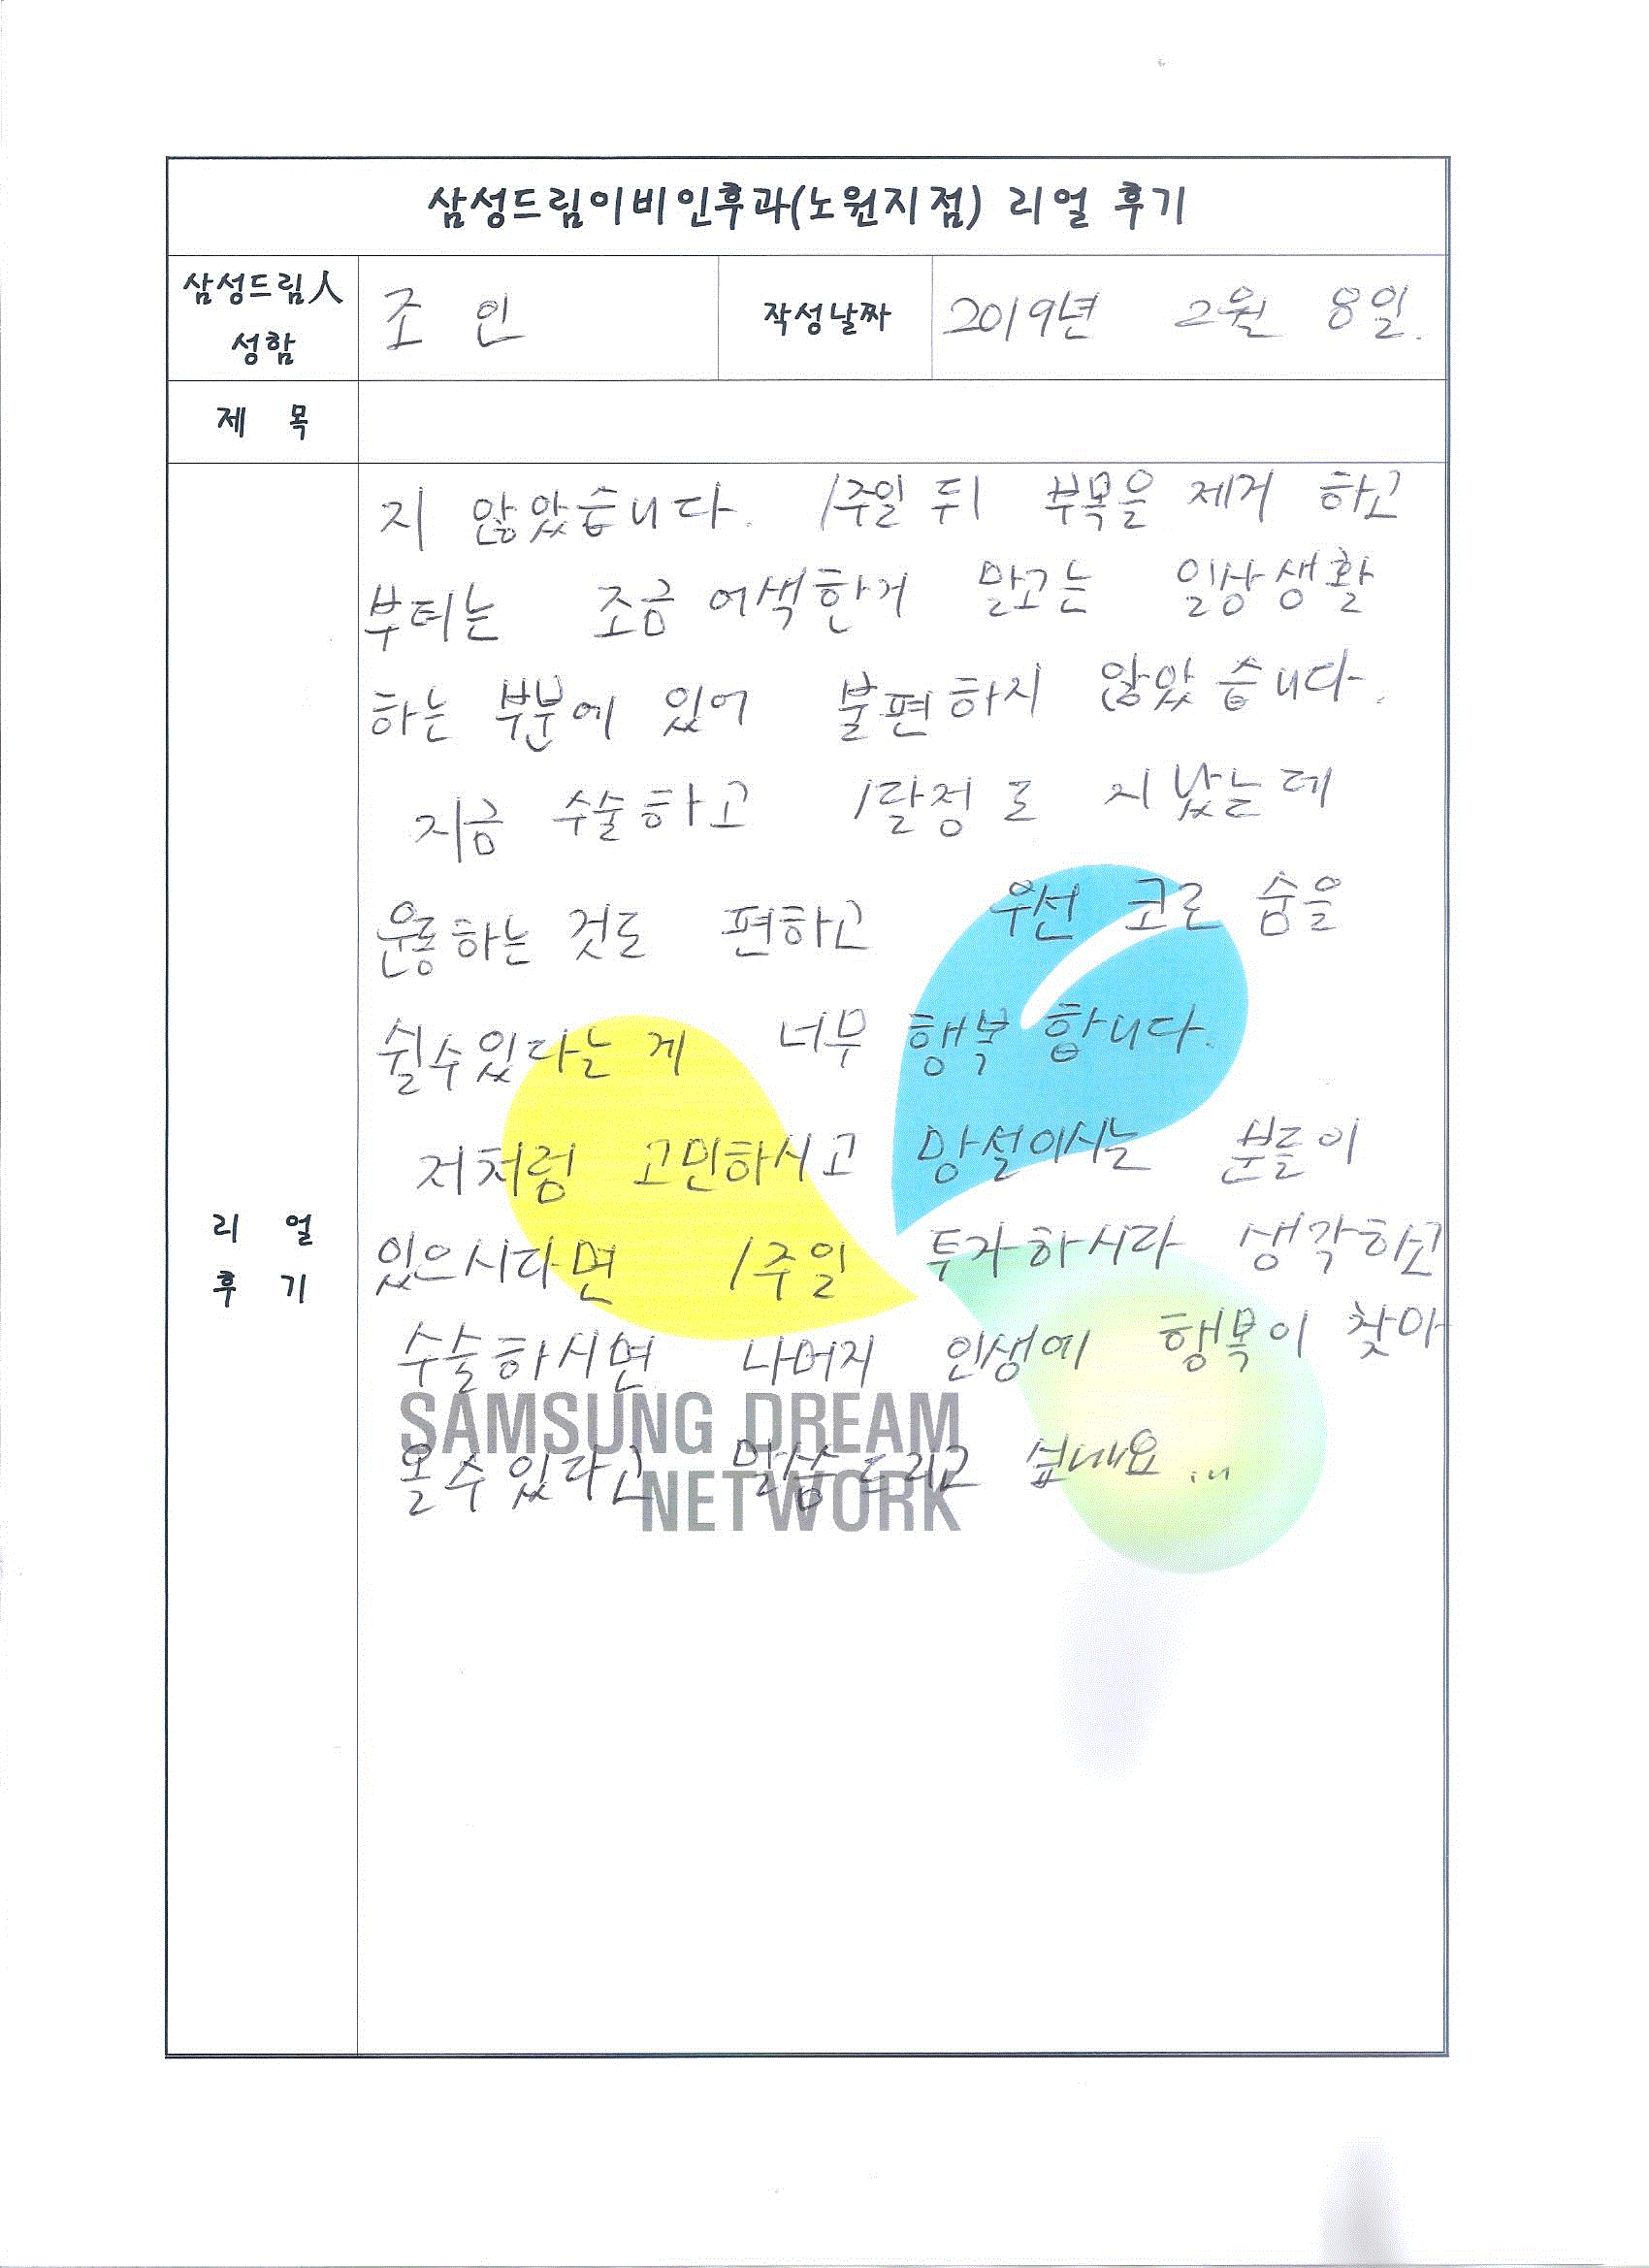 삼성드림이비인후과(노원지점) 리얼 후기
삼성드림人
성함
조 인
작성날짜
2019년 2월 8일.
제 목
리 얼
후 기
지 않았습니다. 1주일 뒤 부목을 제거 하고
부터는 조금 어색한거 말고는 일상생활
하는 부분에 있어 불편하지 않았습니다.
지금 수술하고 1달정도 지났는데
운동하는 것도 편하고 우선 코로 숨을
쉴수있다는 게 너무 행복 합니다.
저처럼 고민하시고 망설이시는 분들이
있으시다면 1주일 투자하시라 생각하고
수술하시면 나머지 인생에 행복이 찾아
올수 있다고 말씀 드리고 싶네요...
SAMSUNG DREAM
NETWORK